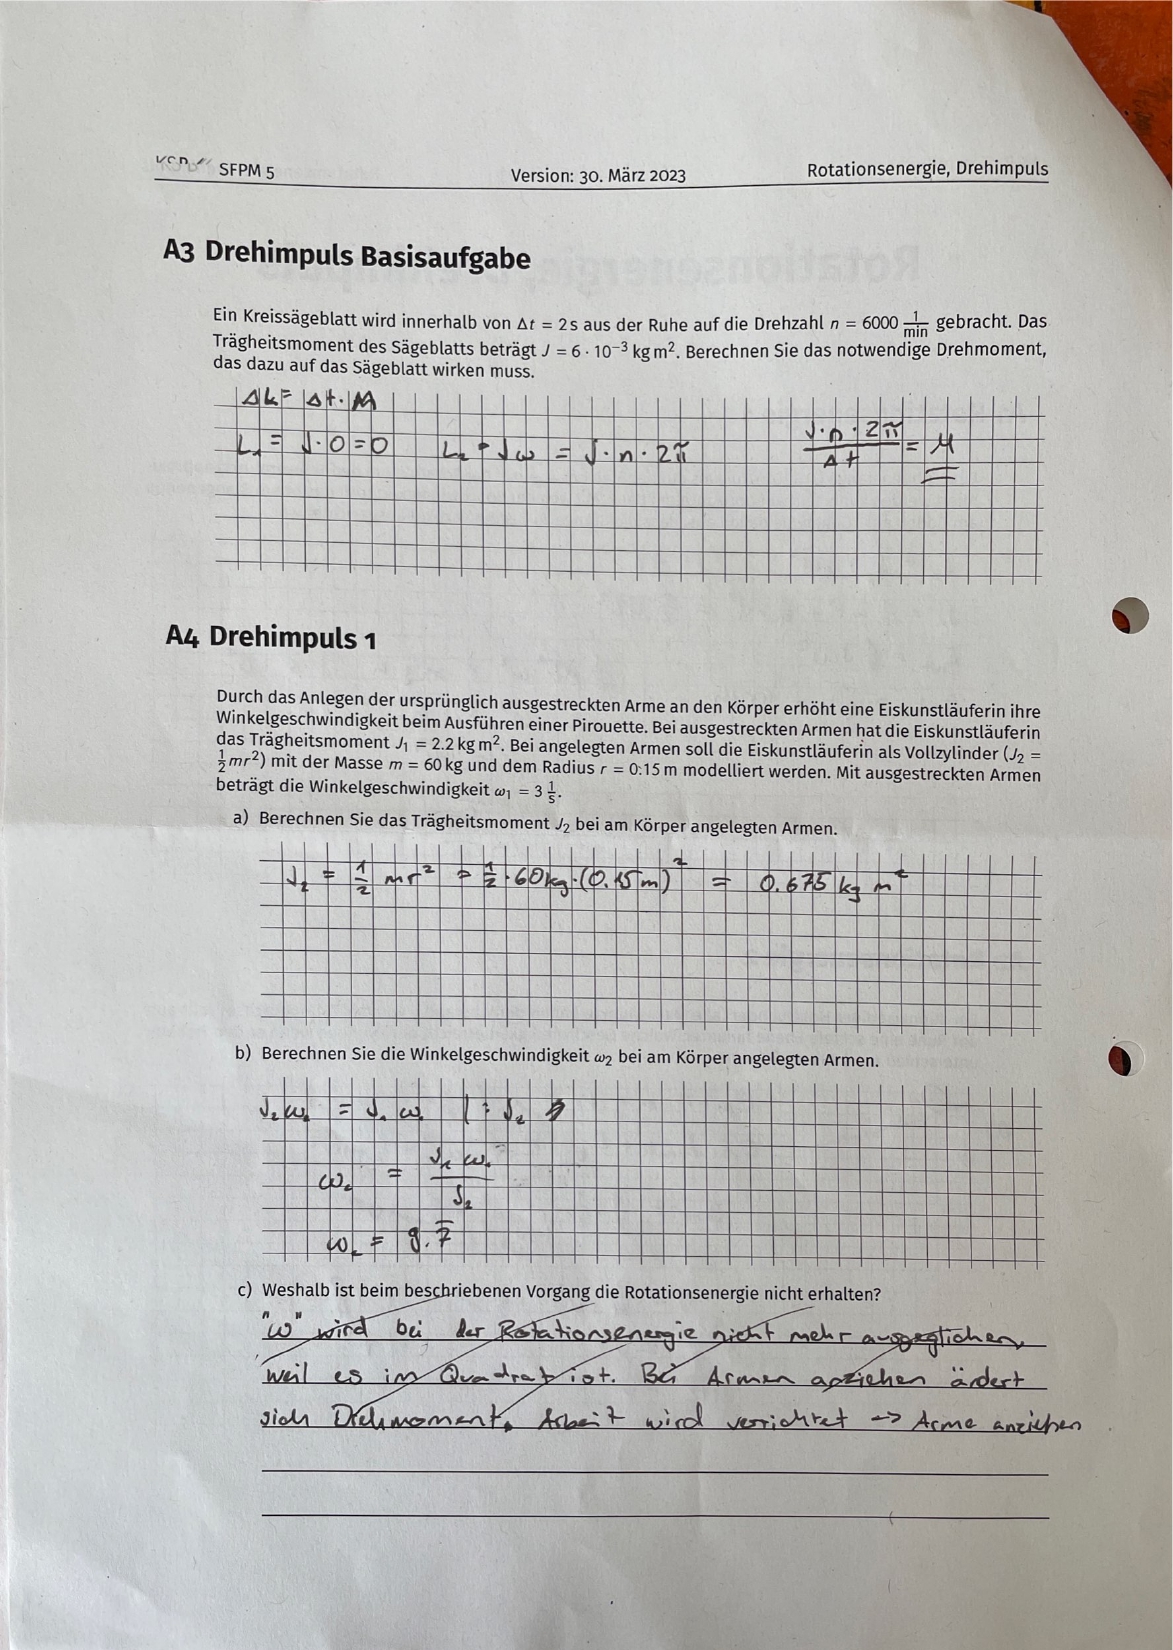 SFPM 5
Version: 30. März 2023
Rotationsenergie, Drehimpuls
A3 Drehimpuls Basisaufgabe
Ein Kreissägeblatt wird innerhalb von Δt = 2 s aus der Ruhe auf die Drehzahl n = 6000 1/min gebracht. Das
Trägheitsmoment des Sägeblatts beträgt J = 6 · 10⁻³ kg m². Berechnen Sie das notwendige Drehmoment,
das dazu auf das Sägeblatt wirken muss.
ΔL = Δt · M
L₁ = J · 0 = 0 L₂ = Jω = J · n · 2π J · n · 2π / Δt = M
A4 Drehimpuls 1
Durch das Anlegen der ursprünglich ausgestreckten Arme an den Körper erhöht eine Eiskunstläuferin ihre
Winkelgeschwindigkeit beim Ausführen einer Pirouette. Bei ausgestreckten Armen hat die Eiskunstläuferin
das Trägheitsmoment J₁ = 2.2 kg m². Bei angelegten Armen soll die Eiskunstläuferin als Vollzylinder (J₂ =
½mr²) mit der Masse m = 60 kg und dem Radius r = 0.15 m modelliert werden. Mit ausgestreckten Armen
beträgt die Winkelgeschwindigkeit ω₁ = 3 1/s.
a) Berechnen Sie das Trägheitsmoment J₂ bei am Körper angelegten Armen.
J₂ = ½ mr² = ½ · 60kg · (0.15m)² = 0.675 kg m²
b) Berechnen Sie die Winkelgeschwindigkeit ω₂ bei am Körper angelegten Armen.
J₂ω₂ = J₁ω₁ | : J₂
ω₂ = J₁ω₁ / J₂
ω₂ = 9.7̅
c) Weshalb ist beim beschriebenen Vorgang die Rotationsenergie nicht erhalten?
"ω" wird bei der Rotationsenergie nicht mehr ausgeglichen,
weil es im Quadrat ist. Bei Armen anziehen ändert
sich Drehmoment. Arbeit wird verrichtet => Arme anziehen